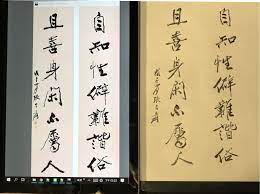 自知性僻難諧俗
且喜身閑不屬人
自知性僻難諧俗
且喜身閑不屬人